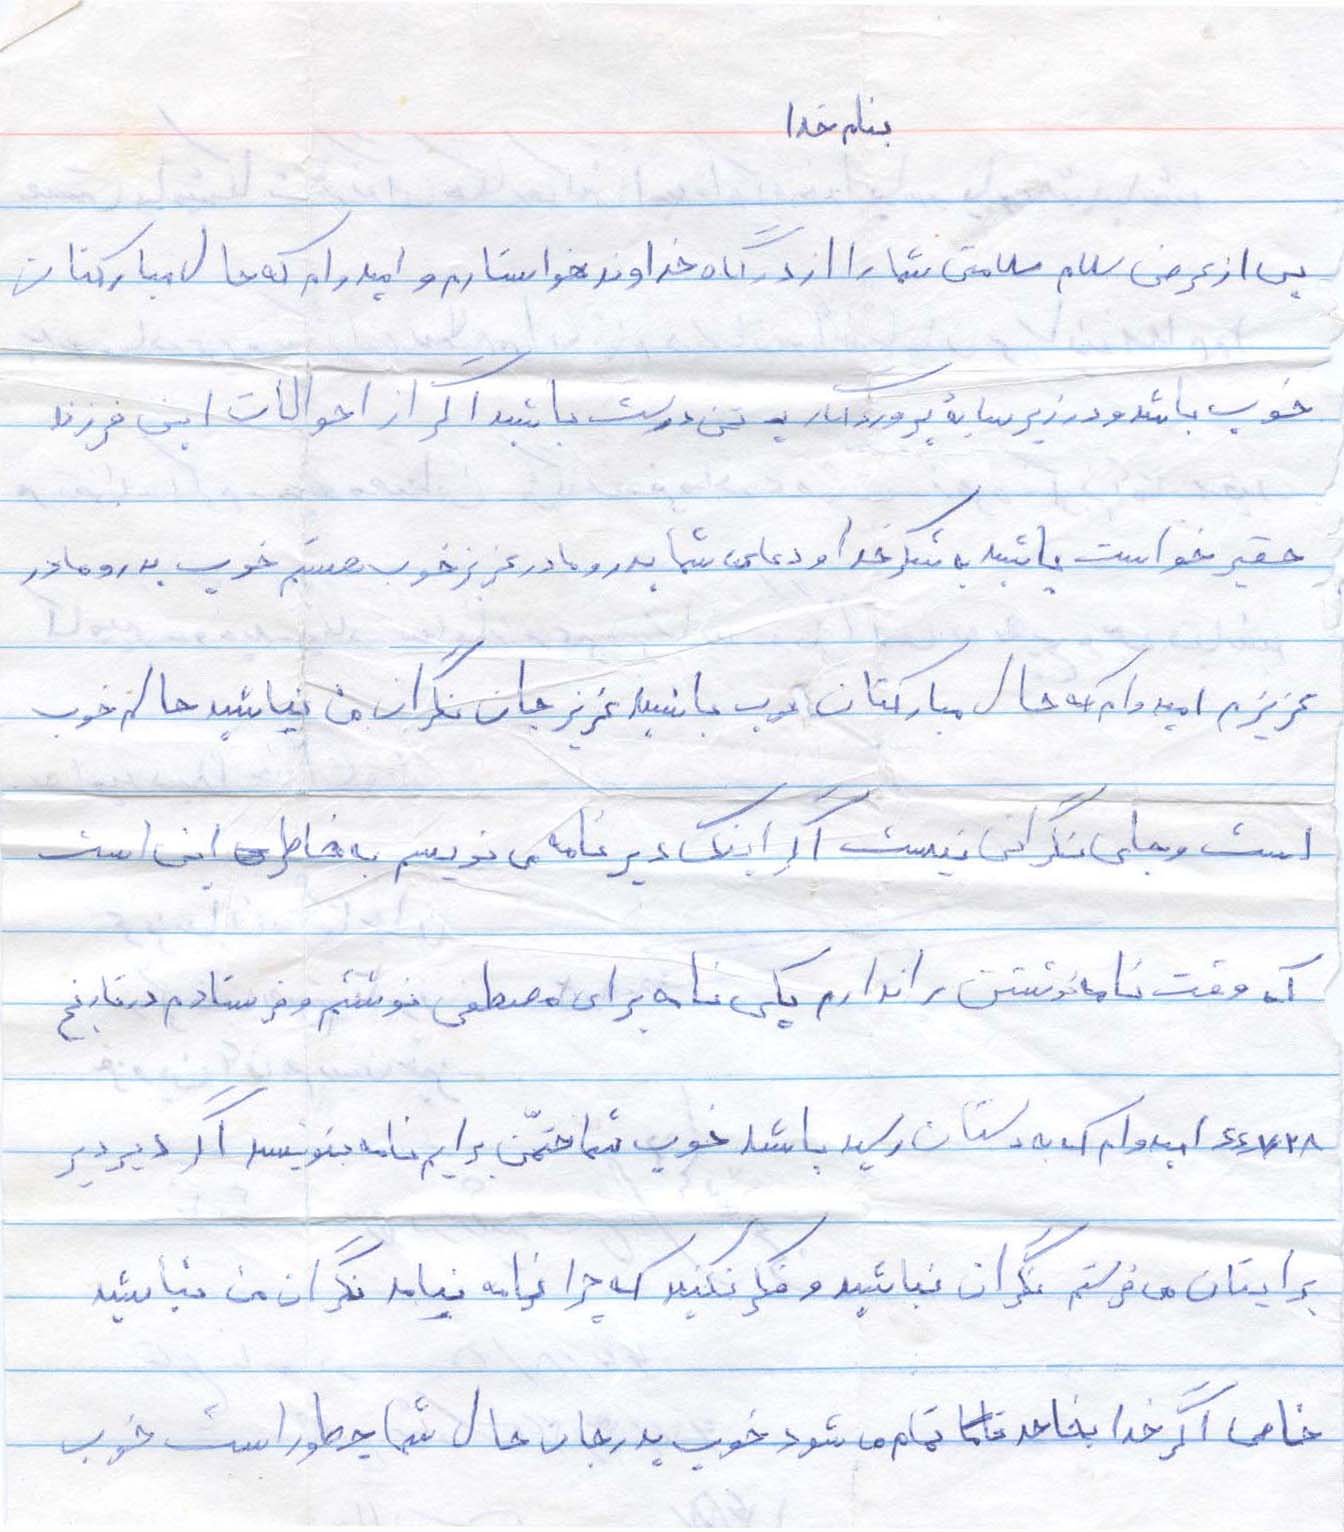 بنام خدا
پس از عرض سلام سلامتی شما را از درگاه خداوند خواستارم و امیدوام که حال مبارکتان
خوب باشد و در زیر سایهٔ پروردگار به تن درست باشید اگر از احوالات این فرزند
حقیر خواست باشید به شکر خدا و دعای شما پدر و مادر عزیز خوب هستم خوب پدر و مادر
عزیزم امیدوام که حال مبارکتان خوب باشید عزیز جان نگران من نباشید حالم خوب
است و جای نگرانی نیست اگر اینک دیر نامه می نویسم به خاطر این است
که وقت نامه نوشتن را ندارم یکی نامه برای مصطفی نوشتم و فرستادم در تاریخ
امیدوام که به دستتان رسید باشد خوب شما حتمّن برایم نامه بنویسد اگر دیر دیر
برایتان می فرستم نگران نباشید و فکر نکنید که چرا نامه نیامد نگران من نباشید
خاصی اگر خدا بخاهد تمام می شود خوب پدر جان حال شما چطور است خوب